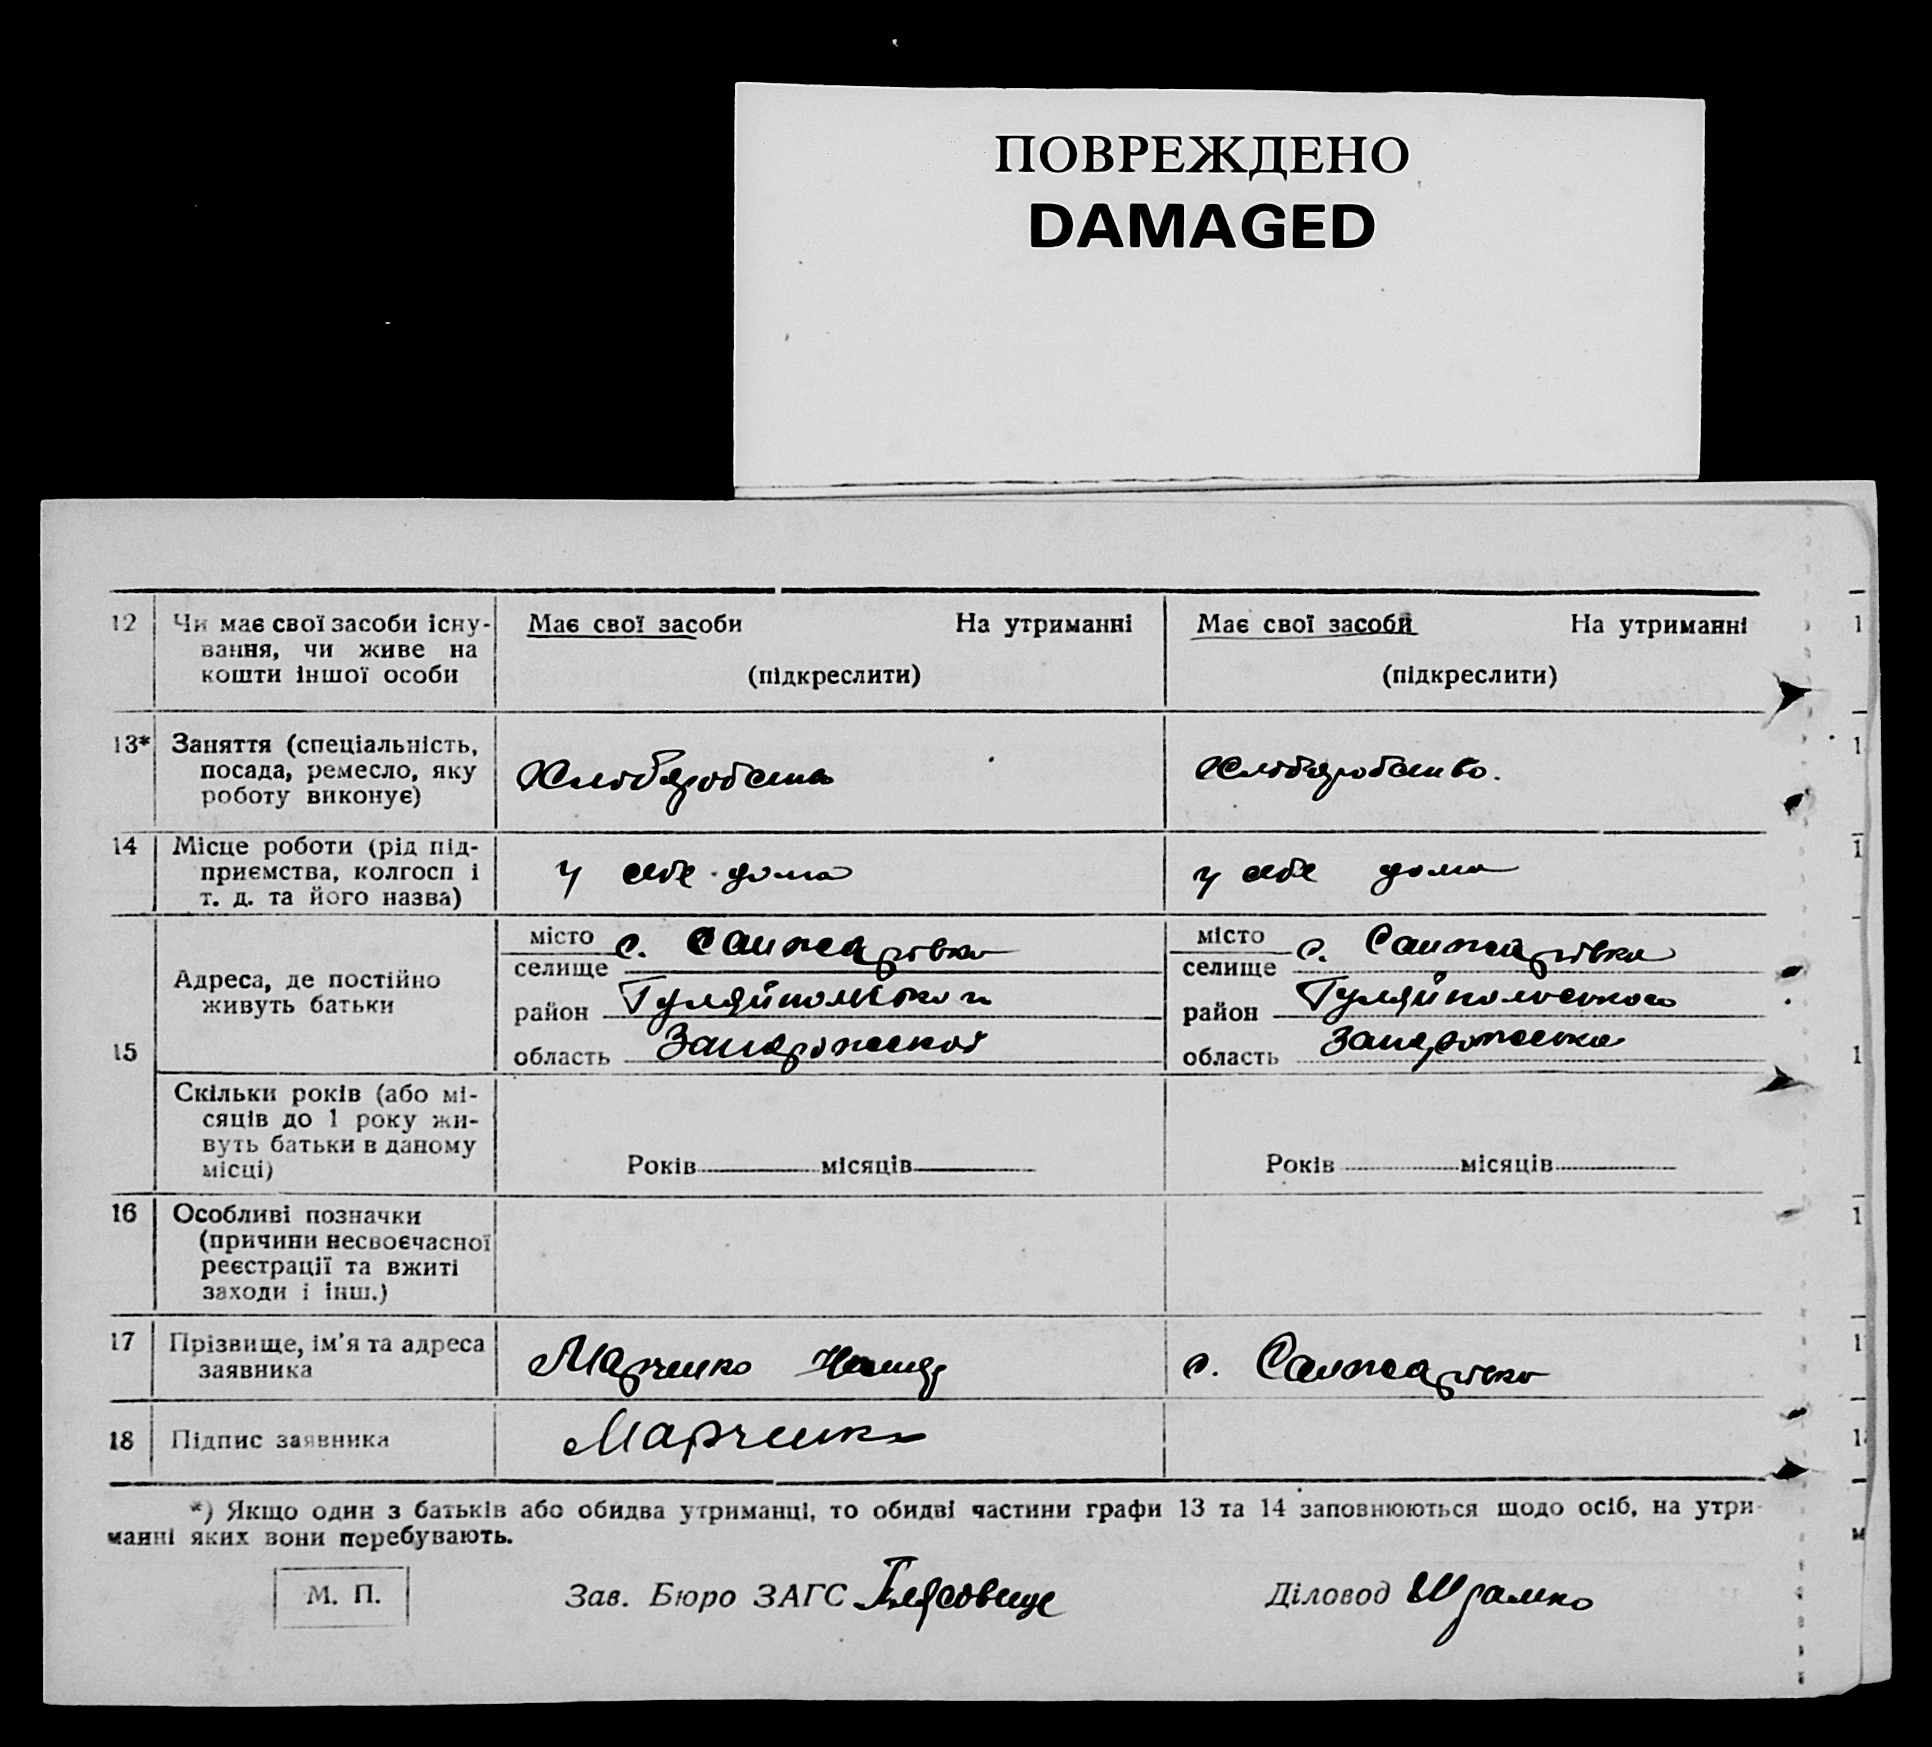 ПОВРЕЖДЕНО
DAMAGED
12 Чи має свої засоби існу-
вання, чи живе на
кошти іншої особи
Має свої засоби На утриманні
(підкреслити)
Має свої засоби На утриманні
(підкреслити)
13* Заняття (спеціальність,
посада, ремесло, яку
роботу виконує)
Хлоборобство.
14 Місце роботи (рід під-
приємства, колгосп і
т. д. та його назва)
у себе дома
у себе дома
15
Адреса, де постійно
живуть батьки
місто с. Санжарівка
селище
район Гуляйпольского
область Запорожской
місто с. Санжарівка
селище
район Гуляйпольского
область Запорожська
Скільки років (або мі-
сяців до 1 року жи-
вуть батьки в даному
місці)
Років місяців
Років місяців
16 Особливі позначки
(причини несвоєчасної
реєстрації та вжиті
заходи і інш.)
17 Прізвище, ім'я та адреса
заявника
Марченко
с. Санжарівка
18 Підпис заявника
Марченко
*) Якщо один з батьків або обидва утриманці, то обидві частини графи 13 та 14 заповнюються щодо осіб, на утри-
манні яких вони перебувають.
М. П.
Зав. Бюро ЗАГС
Діловод Шрамко